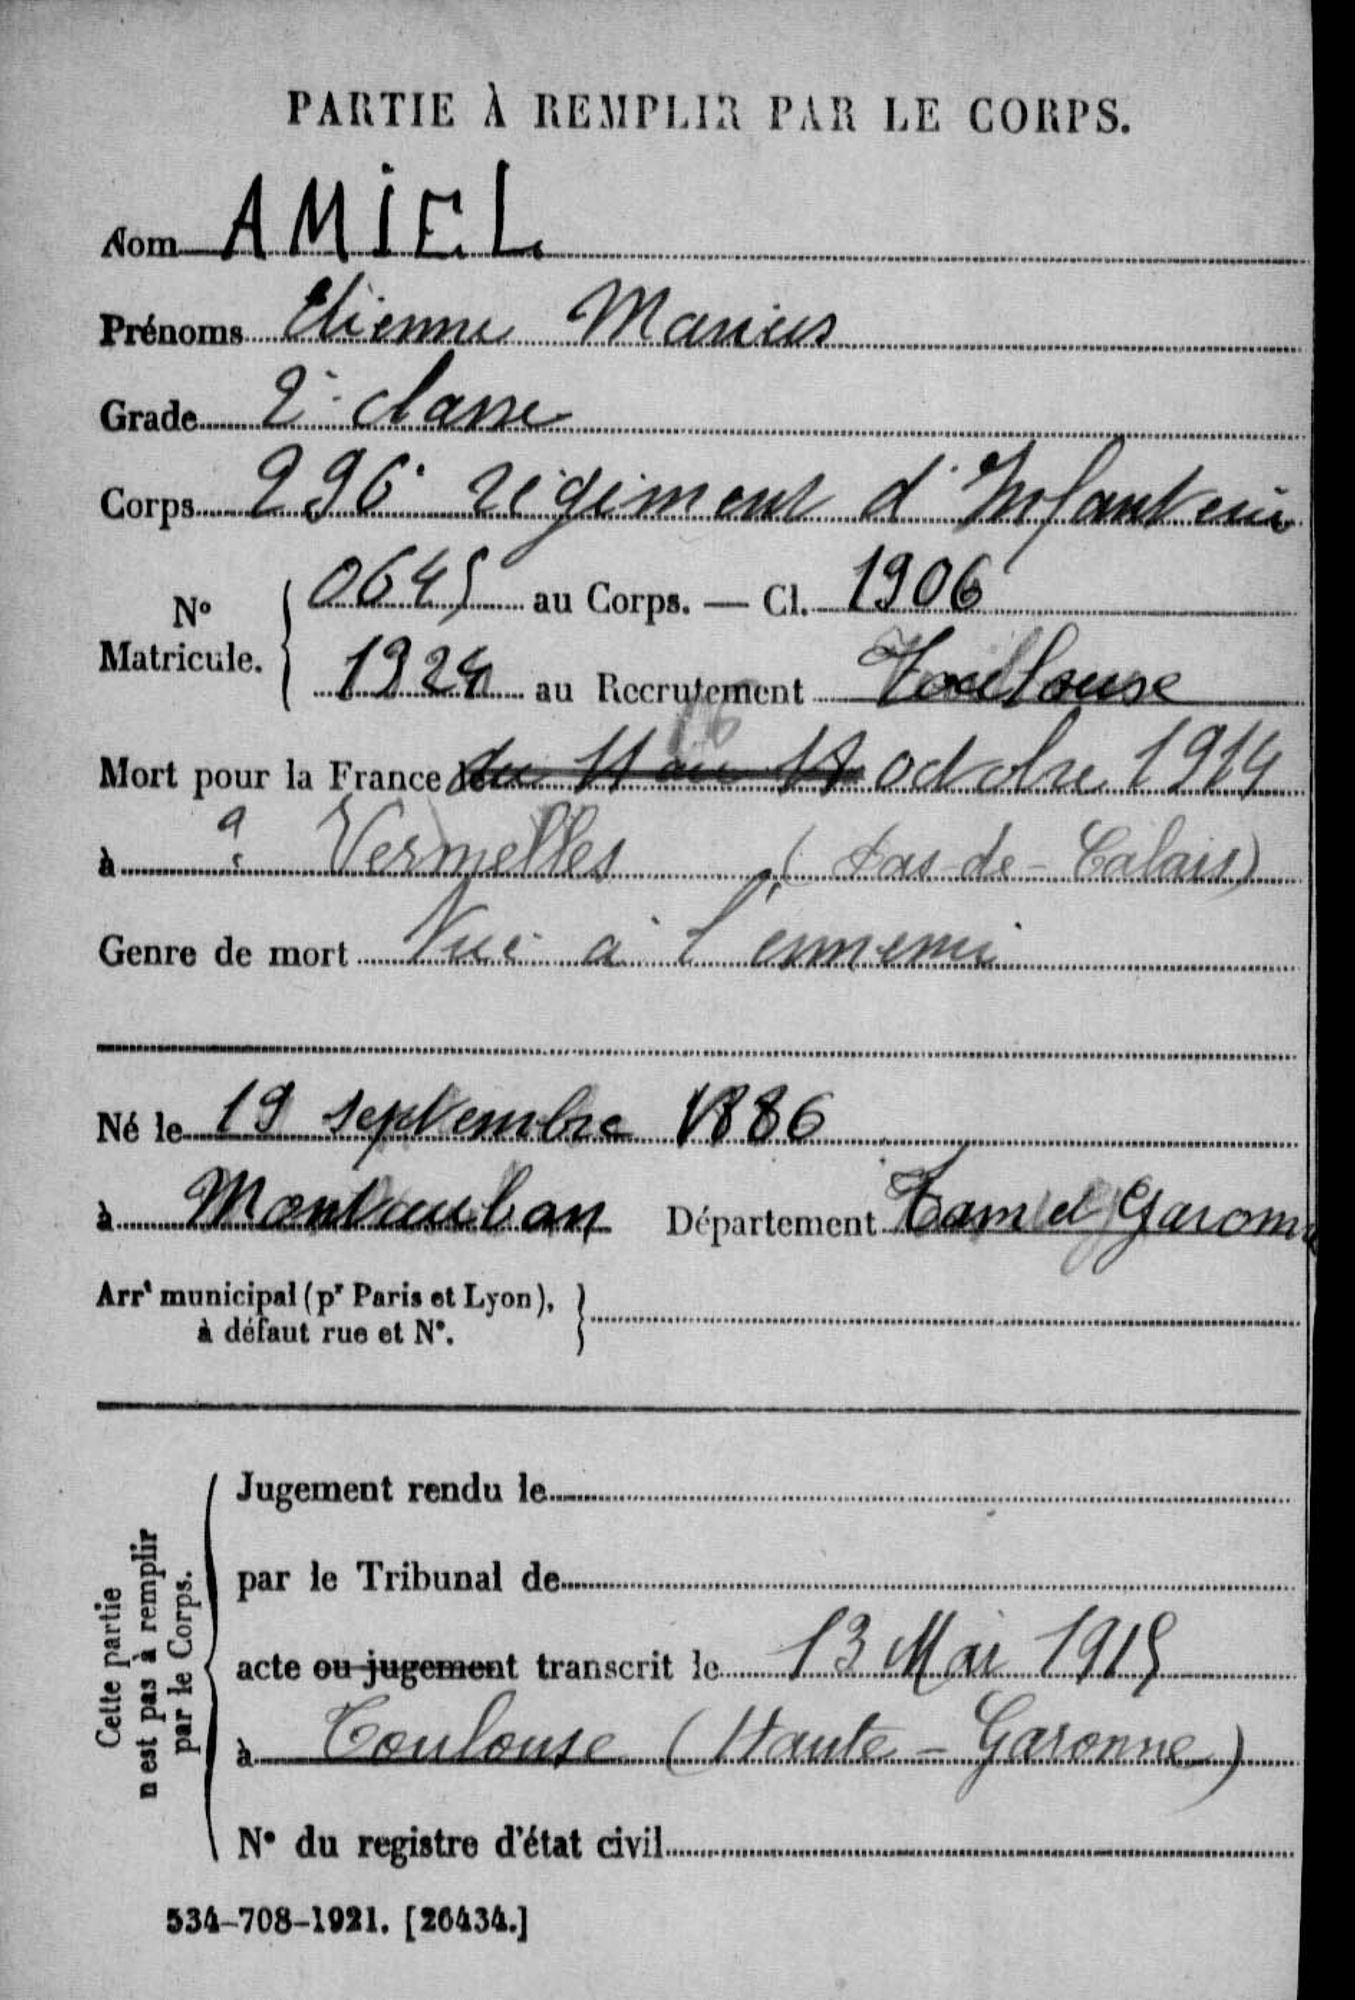 PARTIE À REMPLIR PAR LE CORPS.
Nom AMIEL
Prénoms Etienne Marius
Grade 2e classe
Corps 296e régiment d'Infanterie
No Matricule. { 0645 au Corps. — Cl. 1906
1924 au Recrutement Toulouse
16
Mort pour la France le du 11 au 18 octobre 1914
à à Vermelles (Pas-de-Calais)
Genre de mort Tué à l'ennemi
Né le 19 septembre 1886
à Montauban Département Tarn et Garonne
Arrt municipal (pr Paris et Lyon), à défaut rue et No. }
Cette partie n'est pas à remplir par le Corps.
Jugement rendu le
par le Tribunal de
acte ou jugement transcrit le 13 Mai 1915
à Toulouse (Haute-Garonne)
No du registre d'état civil
534-708-1921. [26434.]